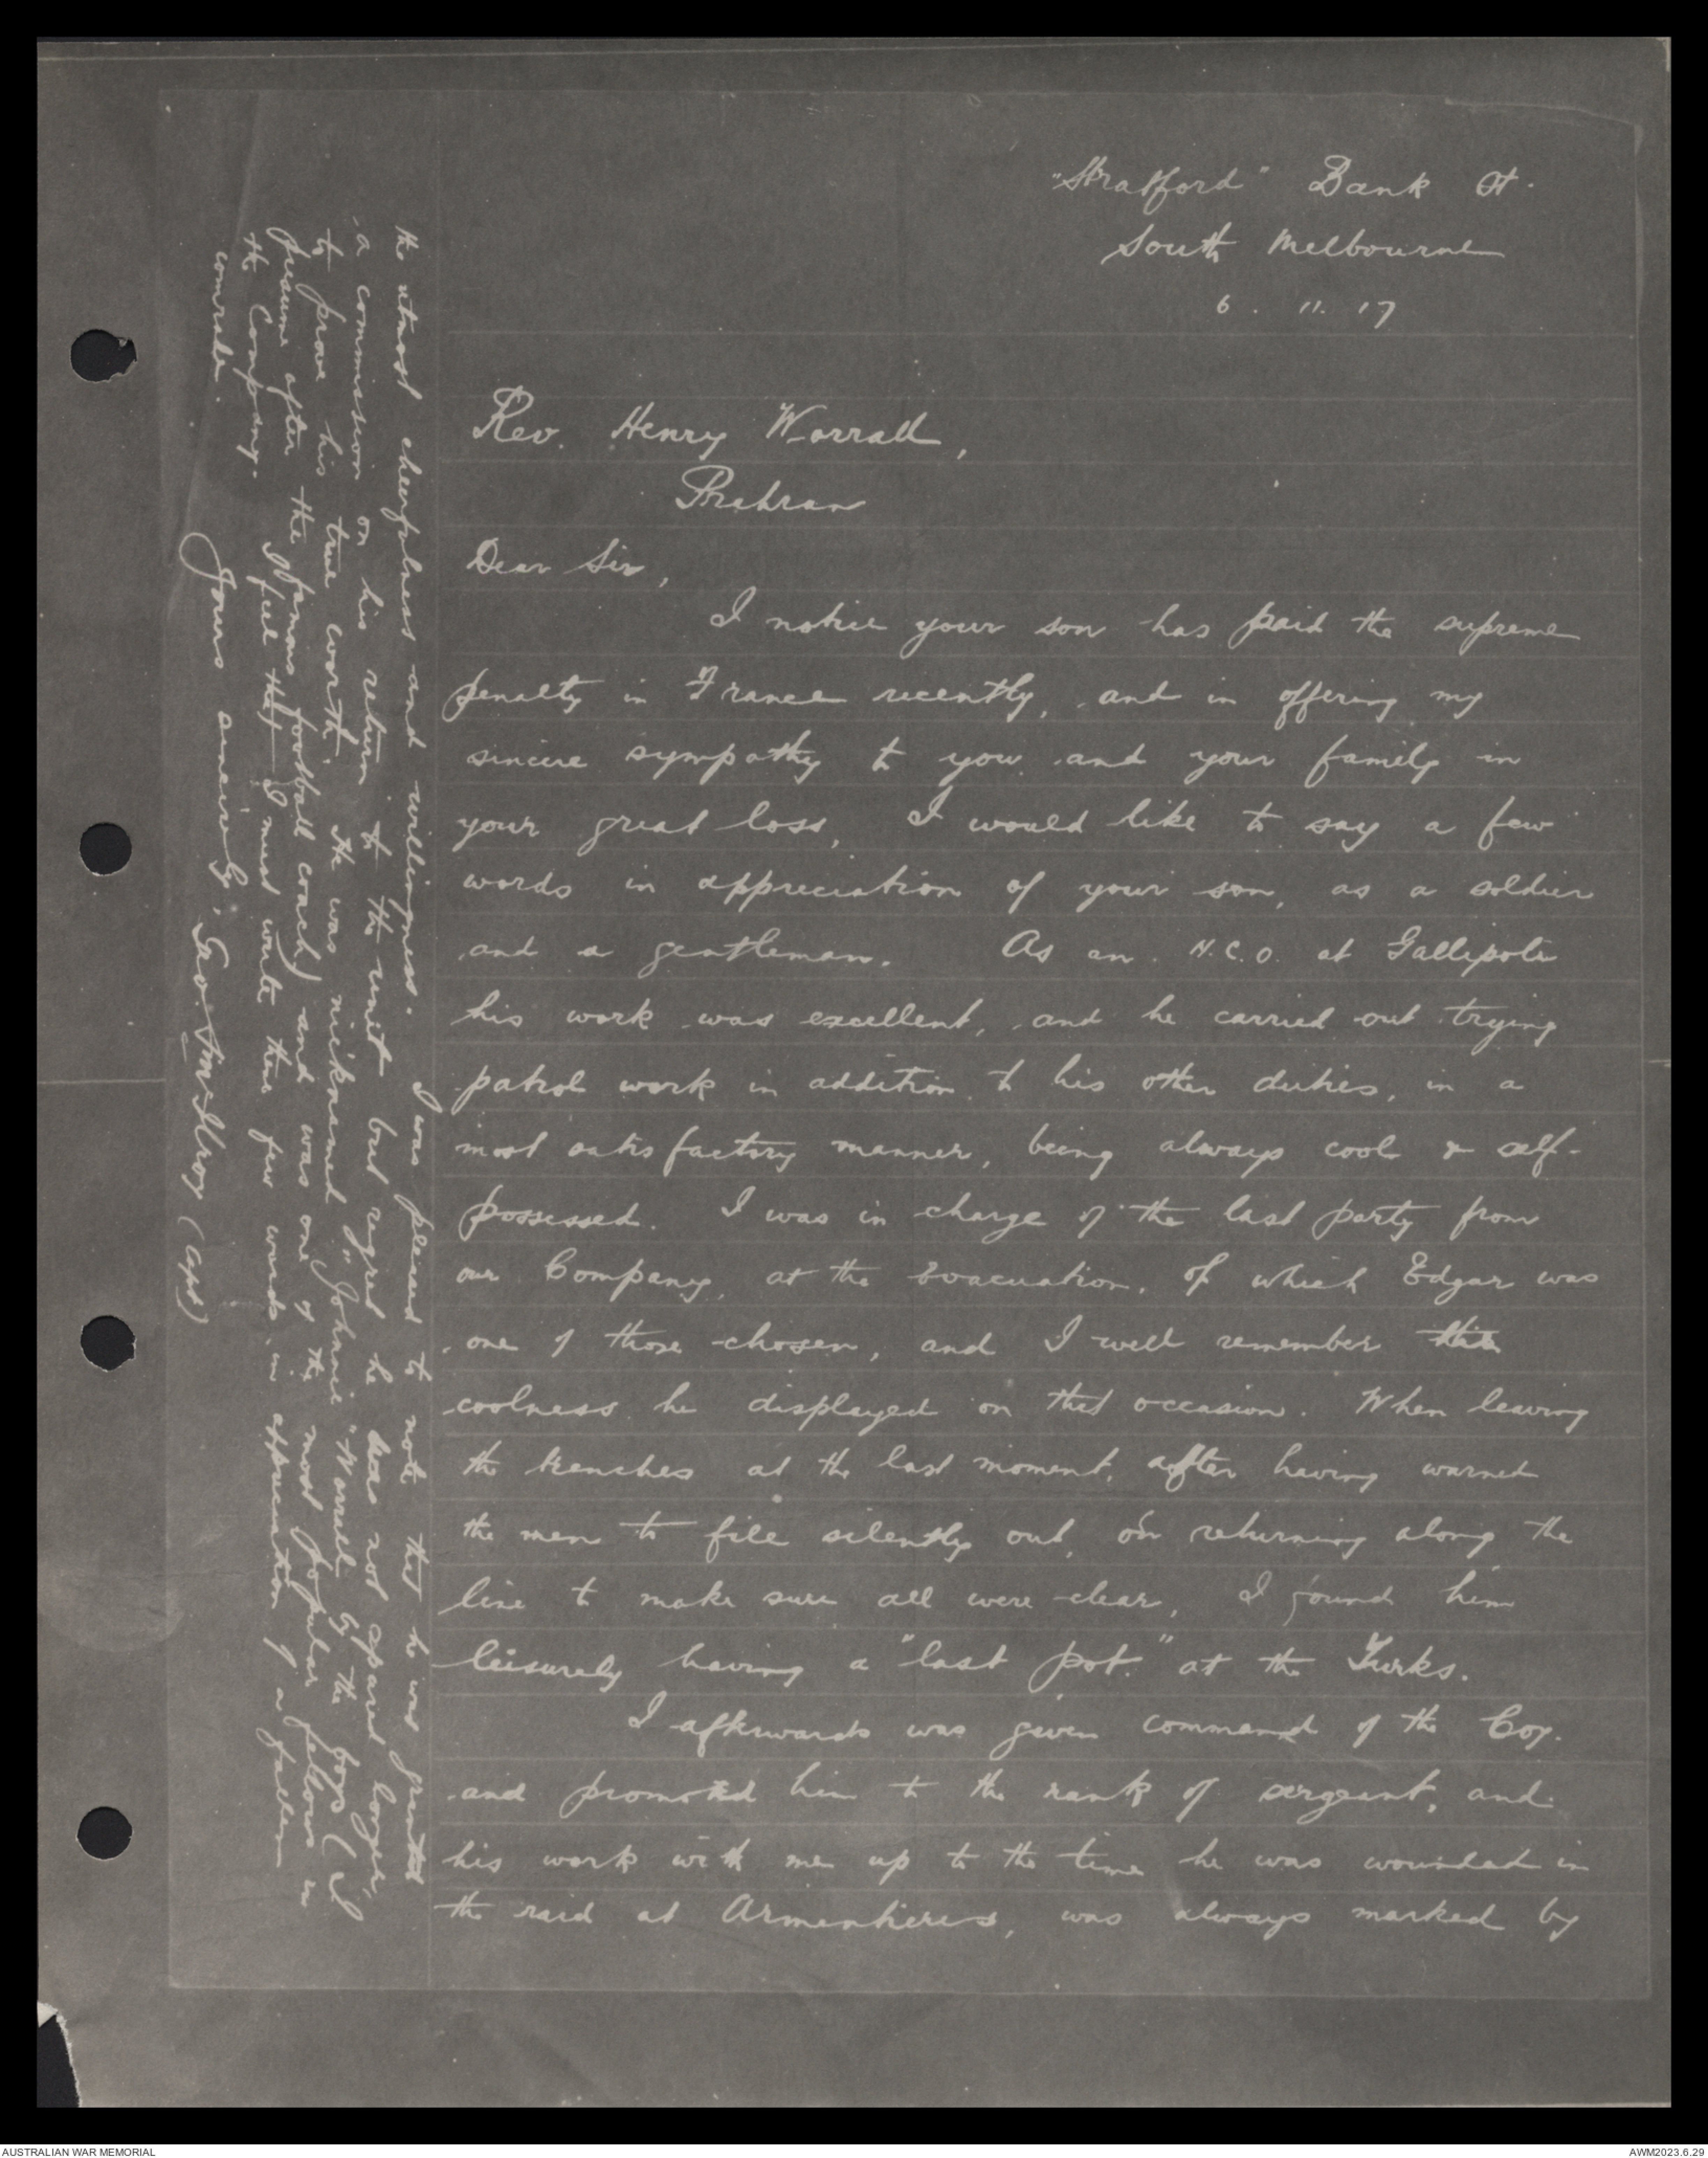 "Stratford" Bank St.
South Melbourne
6. 11. 17
Rev. Henry Worrall,
Prahran
Dear Sir,
I notice your son has paid the supreme
penalty in France recently, and in offering my
sincere sympathy to you and your family in
your great loss, I would like to say a few
words in appreciation of your son, as a soldier
and a gentleman. As an N.C.O. at Gallipoli
his work was excellent, and he carried out trying
patrol work in addition to his other duties, in a
most satisfactory manner, being always cool & self-
possessed. I was in charge of the last party from
our Company, at the Evacuation, of which Edgar was
one of those chosen, and I well remember the
coolness he displayed on that occasion. When leaving
the trenches at the last moment, after having warned
the men to file silently out, on returning along the
line to make sure all were clear, I found him
leisurely having a "last pot." at the Turks.
I afterwards was given command of the Coy.
and promoted him to the rank of sergeant, and
his work with me up to the time he was wounded in
the raid at Armentieres, was always marked by
the utmost cheerfulness and willingness. I was pleased to note that he was granted
a commission on his return to the unit but regret he was not spared longer,
to prove his true worth. He was nicknamed "Johnnie" Worrall by the boys (I
presume after the famous football coach) and was one of the most popular fellows in
the Company. I feel that I must write these few words in appreciation of a fallen
comrade.
Yours sincerely, Geo. McIlroy (Capt)
AUSTRALIAN WAR MEMORIAL
AWM2023.6.29